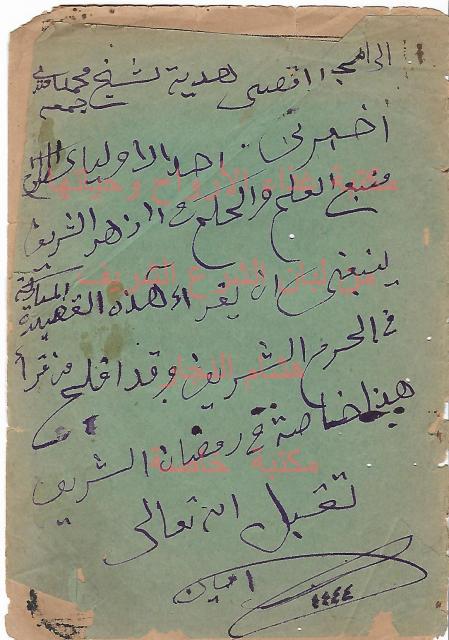 الى المسجد الاقصى هدية لشيخ محمد
جمعه
أخبرني احد الاولياء
منبع العلم والحلم في الازهر الشريف
ينبغي ان يقراء هذه القصيدة المباركة
في الحرم الشريف وقد افلح من قرأ
هنا خاصة في رمضان الشريف
تقبل الله تعالى
امين
١٤٤٤
مكتبة غذاء الأرواح وحياتها
من لبنان الشرع الشريف
هشام النجار
مكتبة خاصة